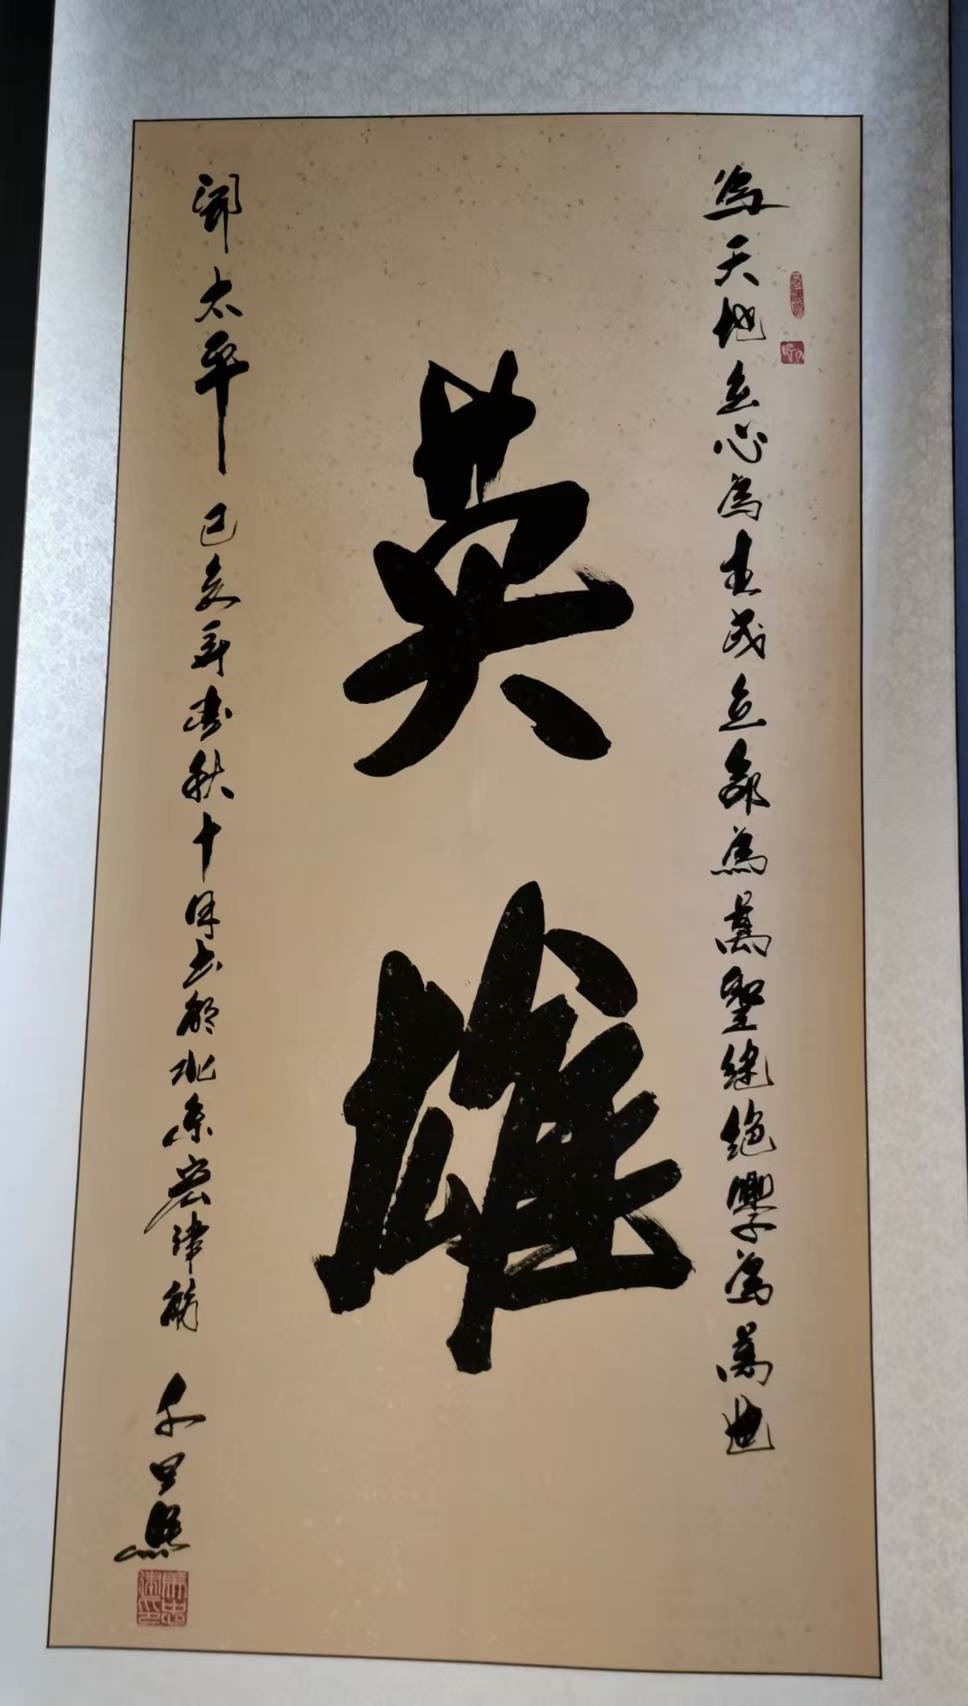 為天地立心為生民立命為萬聖繼絕學為萬世
英雄
開太平 己亥年秋十月书於北京宏 千里